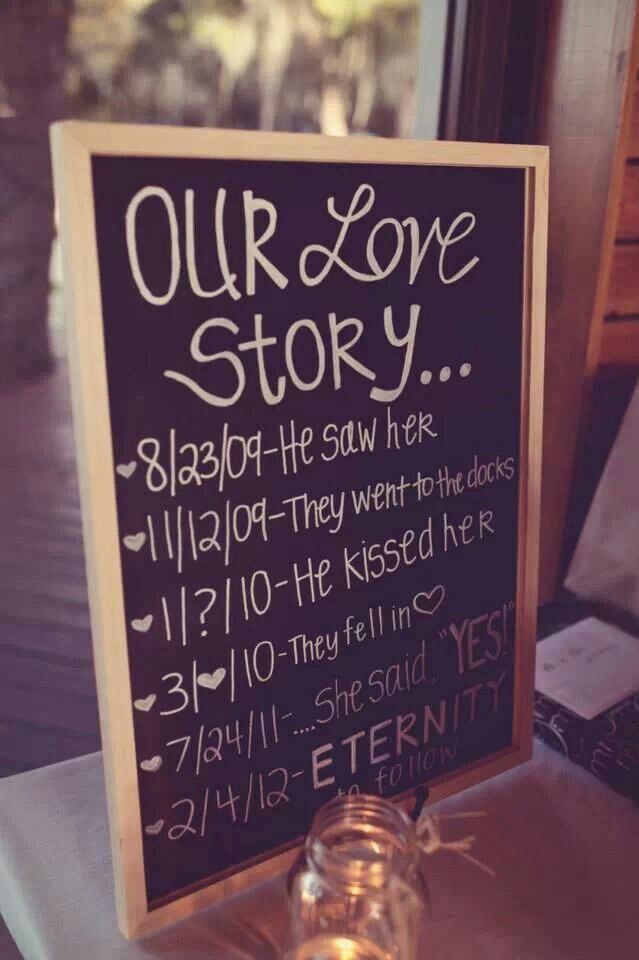 OUR Love
Story...
♥8/23/09-He saw her
♥11/12/09-They went to the docks
♥1/?/10-He kissed her
♥3/♥/10-They fell in♡
♥7/24/11-....She said, "YES!"
♥2/4/12-ETERNITY
to follow